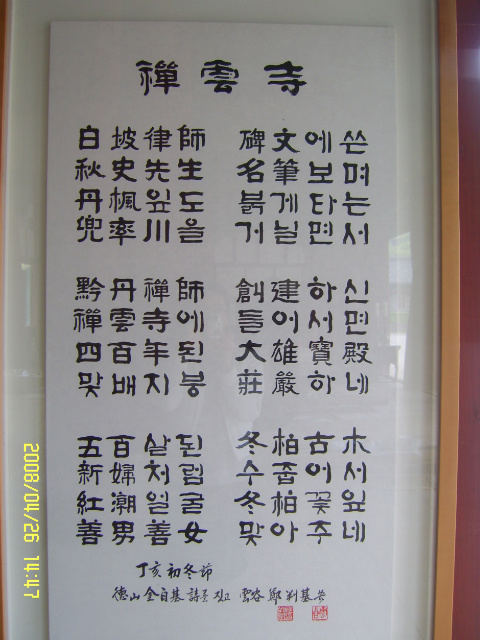 禪雲寺
白坡律師 碑文에쓴
秋史先生 名筆보며
丹楓잎도 붉게타는
兜率川을 거닐면서
黔丹禪師 創建하신
禪雲寺에 들어서면
四百年된 大雄寶殿
맞배지붕 莊嚴하네
五百살된 冬柏古木
新婦처럼 수줍어서
紅潮일굴 冬柏꽃잎
善男善女 맞아주네
丁亥 初冬節
德山 金自基 詩 雲谷 鄭
2008/04/26 14:47